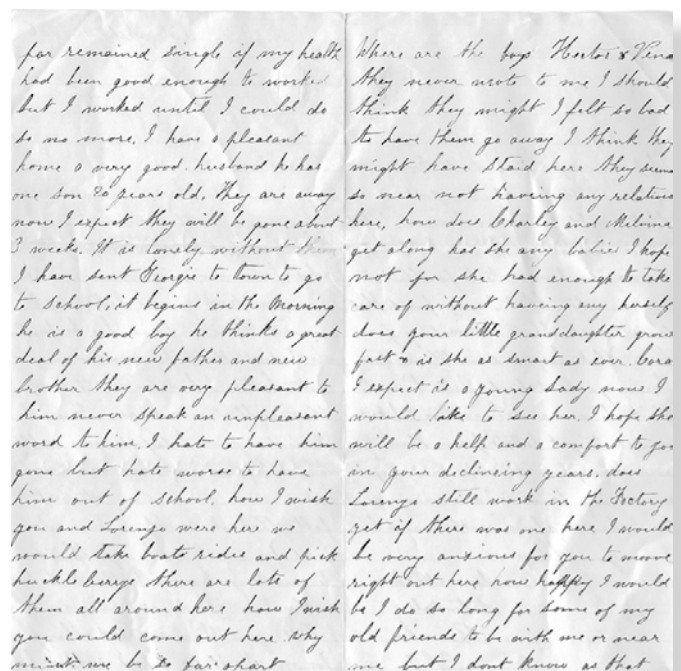 far remained single if my health
had been good enough to worked
but I worked until I could do
so no more, I have a pleasant
home a very good husband he has
one son 20 years old, They are away
now I expect they will be gone about
3 weeks. It is lonely without them
I have sent Georgie to town to go
to school, it begins in the Morning
he is a good boy he thinks a great
deal of his new father and new
brother they are very pleasant to
him never speak an unpleasant
word to him, I hate to have him
gone but hate worse to have
him out of school, how I wish
you and Lorenzo were here we
would take boats rides and pick
huckleberrys there are lots of
them all around here how I wish
you could come out here why
must we be so far apart
Where are the boys Hector &
they never wrote to me I should
think they might I felt so bad
to have them go away I think they
might have staid here they seem
so near not haveing any relations
here, how does Charley and Melvina
get along has she any babies I hope
not for she had enough to take
care of without haveing any herself
does your little granddaughter grow
fast & is she as smart as ever. Cora
I expect is a young Lady now I
would like to see her. I hope she
will be a help and a comfort to you
in your declineing years. does
Lorenzo still work in the Factory
yet if there was one here I would
be very anxious for you to moove
right out here how happy I would
be I do so long for some of my
old friends to be with me or near
me but I dont know as that